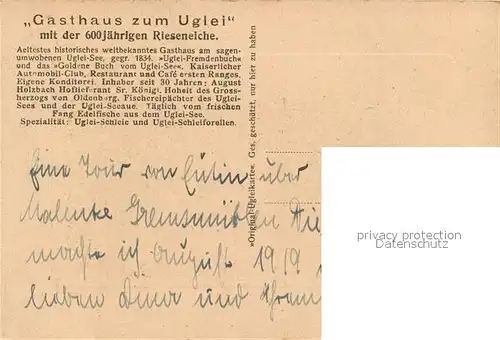 „Gasthaus zum Uglei“
mit der 600jährigen Rieseneiche.
Aeltestes historisches weltbekanntes Gasthaus am sagen-
umwobenen Uglei-See, gegr. 1834. »Uglei-Fremdenbuch«
und das »Goldene Buch vom Uglei-See«. Kaiserlicher
Automobil-Club, Restaurant und Café ersten Ranges.
Eigene Konditorei. Inhaber seit 30 Jahren: August
Holzbach Hoflieferant Sr. Königl. Hoheit des Gross-
herzogs von Oldenburg. Fischereipächter des Uglei-
Sees und der Uglei-Seeaue. Täglich vom frischen
Fang Edelfische aus dem Uglei-See.
Spezialität: Uglei-Schleie und Uglei-Schleiforellen.
»Original-Ugleikarte« Ges. geschützt, nur hier zu haben
Eine Tour von Eutin über
Malente Gremsmühlen
machte ich August 1919
lieben und
privacy protection
Datenschutz